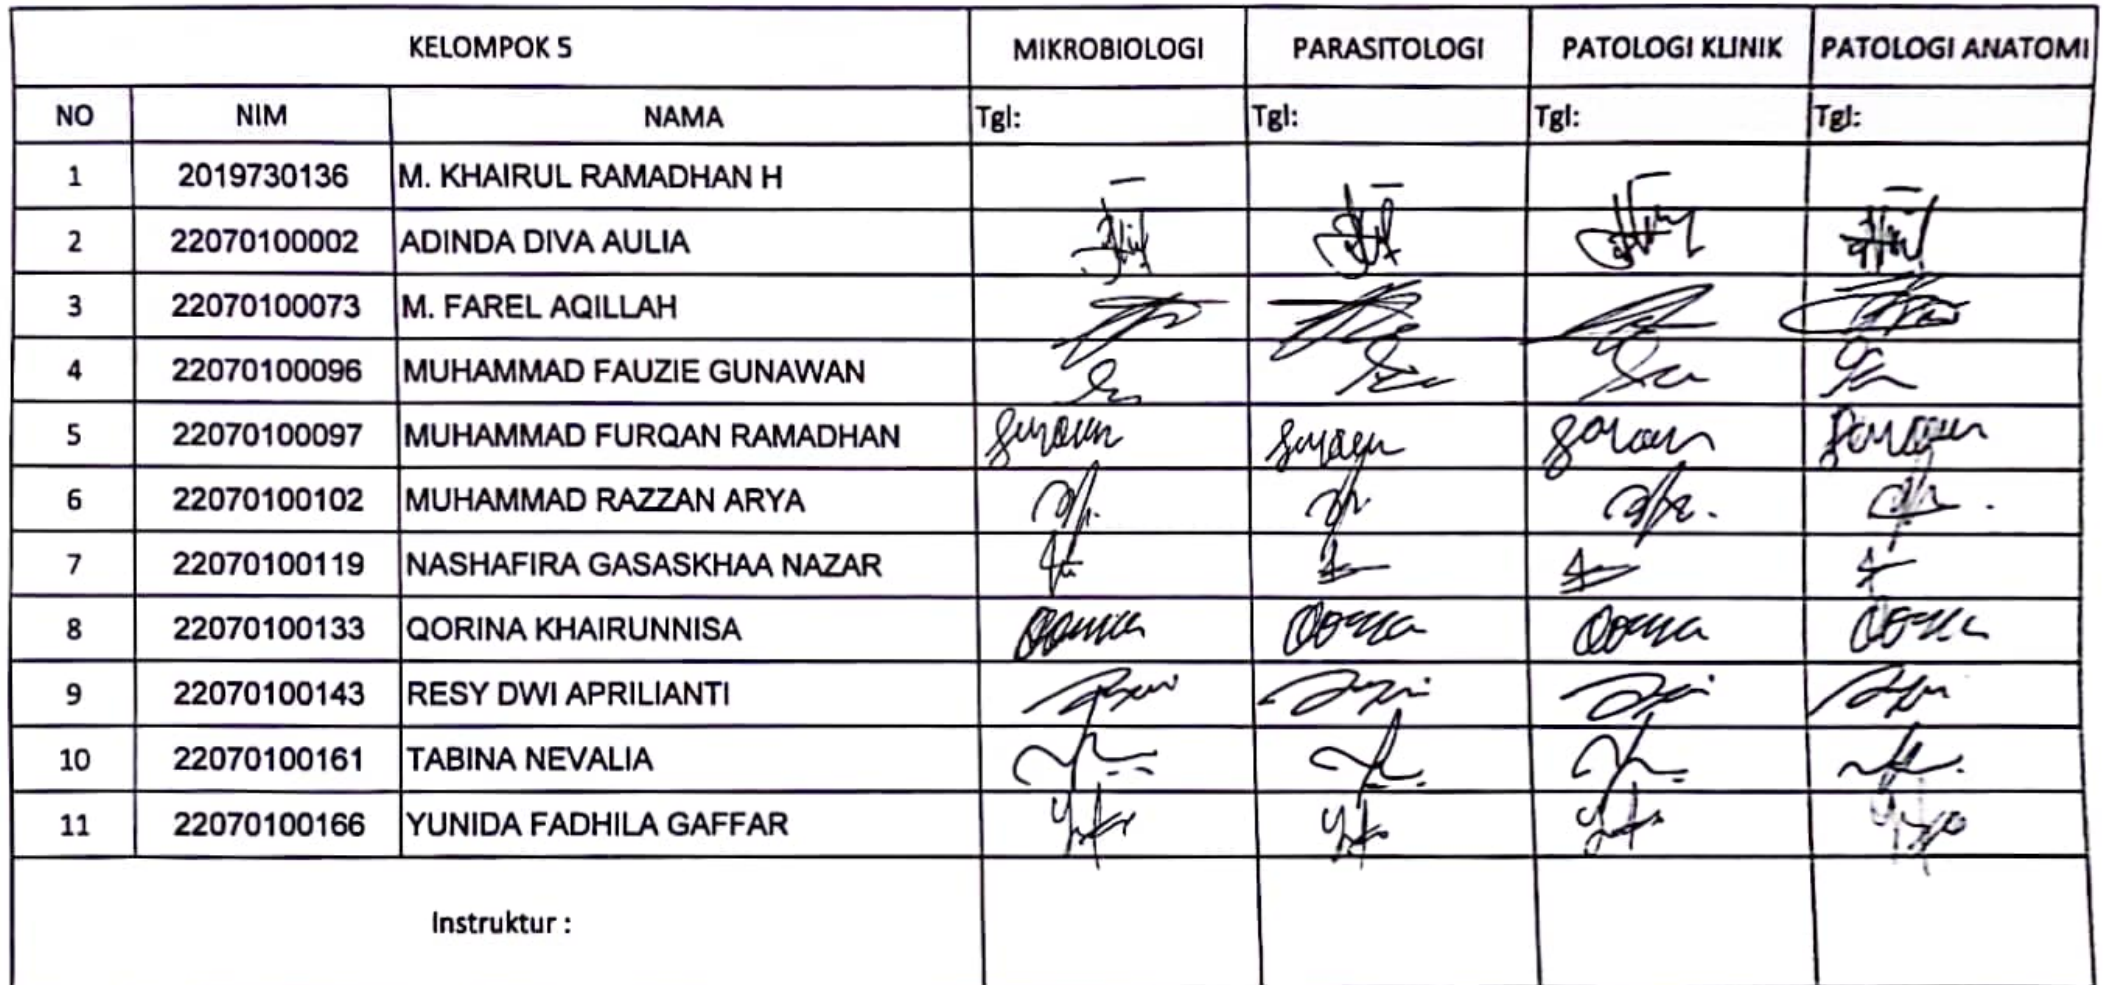 KELOMPOK 5 MIKROBIOLOGI PARASITOLOGI PATOLOGI KLINIK PATOLOGI ANATOMI
NO NIM NAMA Tgl: Tgl: Tgl: Tgl:
1 2019730136 M. KHAIRUL RAMADHAN H
2 22070100002 ADINDA DIVA AULIA
3 22070100073 M. FAREL AQILLAH
4 22070100096 MUHAMMAD FAUZIE GUNAWAN
5 22070100097 MUHAMMAD FURQAN RAMADHAN
6 22070100102 MUHAMMAD RAZZAN ARYA
7 22070100119 NASHAFIRA GASASKHAA NAZAR
8 22070100133 QORINA KHAIRUNNISA
9 22070100143 RESY DWI APRILIANTI
10 22070100161 TABINA NEVALIA
11 22070100166 YUNIDA FADHILA GAFFAR
Instruktur :